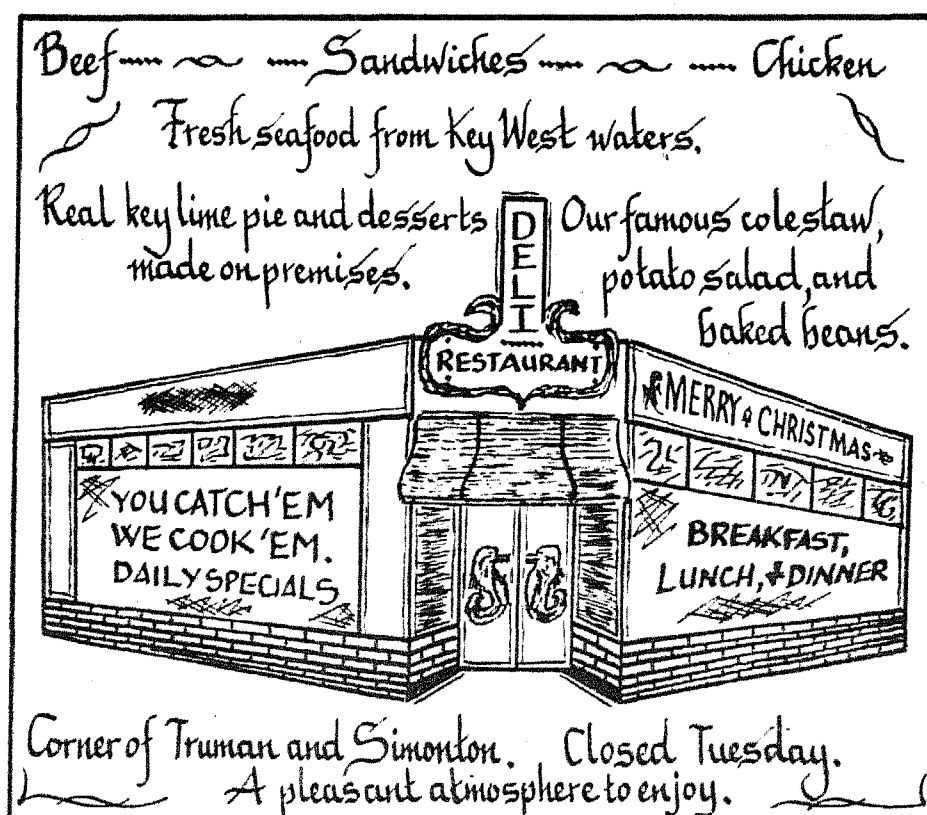 Beef Sandwiches Chicken
Fresh seafood from Key West waters.
Real key lime pie and desserts
made on premises.
Our famous coleslaw,
potato salad, and
baked beans.
DELI
RESTAURANT
MERRY CHRISTMAS
YOU CATCH 'EM
WE COOK 'EM.
DAILY SPECIALS
BREAKFAST,
LUNCH, & DINNER
Corner of Truman and Simonton. Closed Tuesday.
A pleasant atmosphere to enjoy.